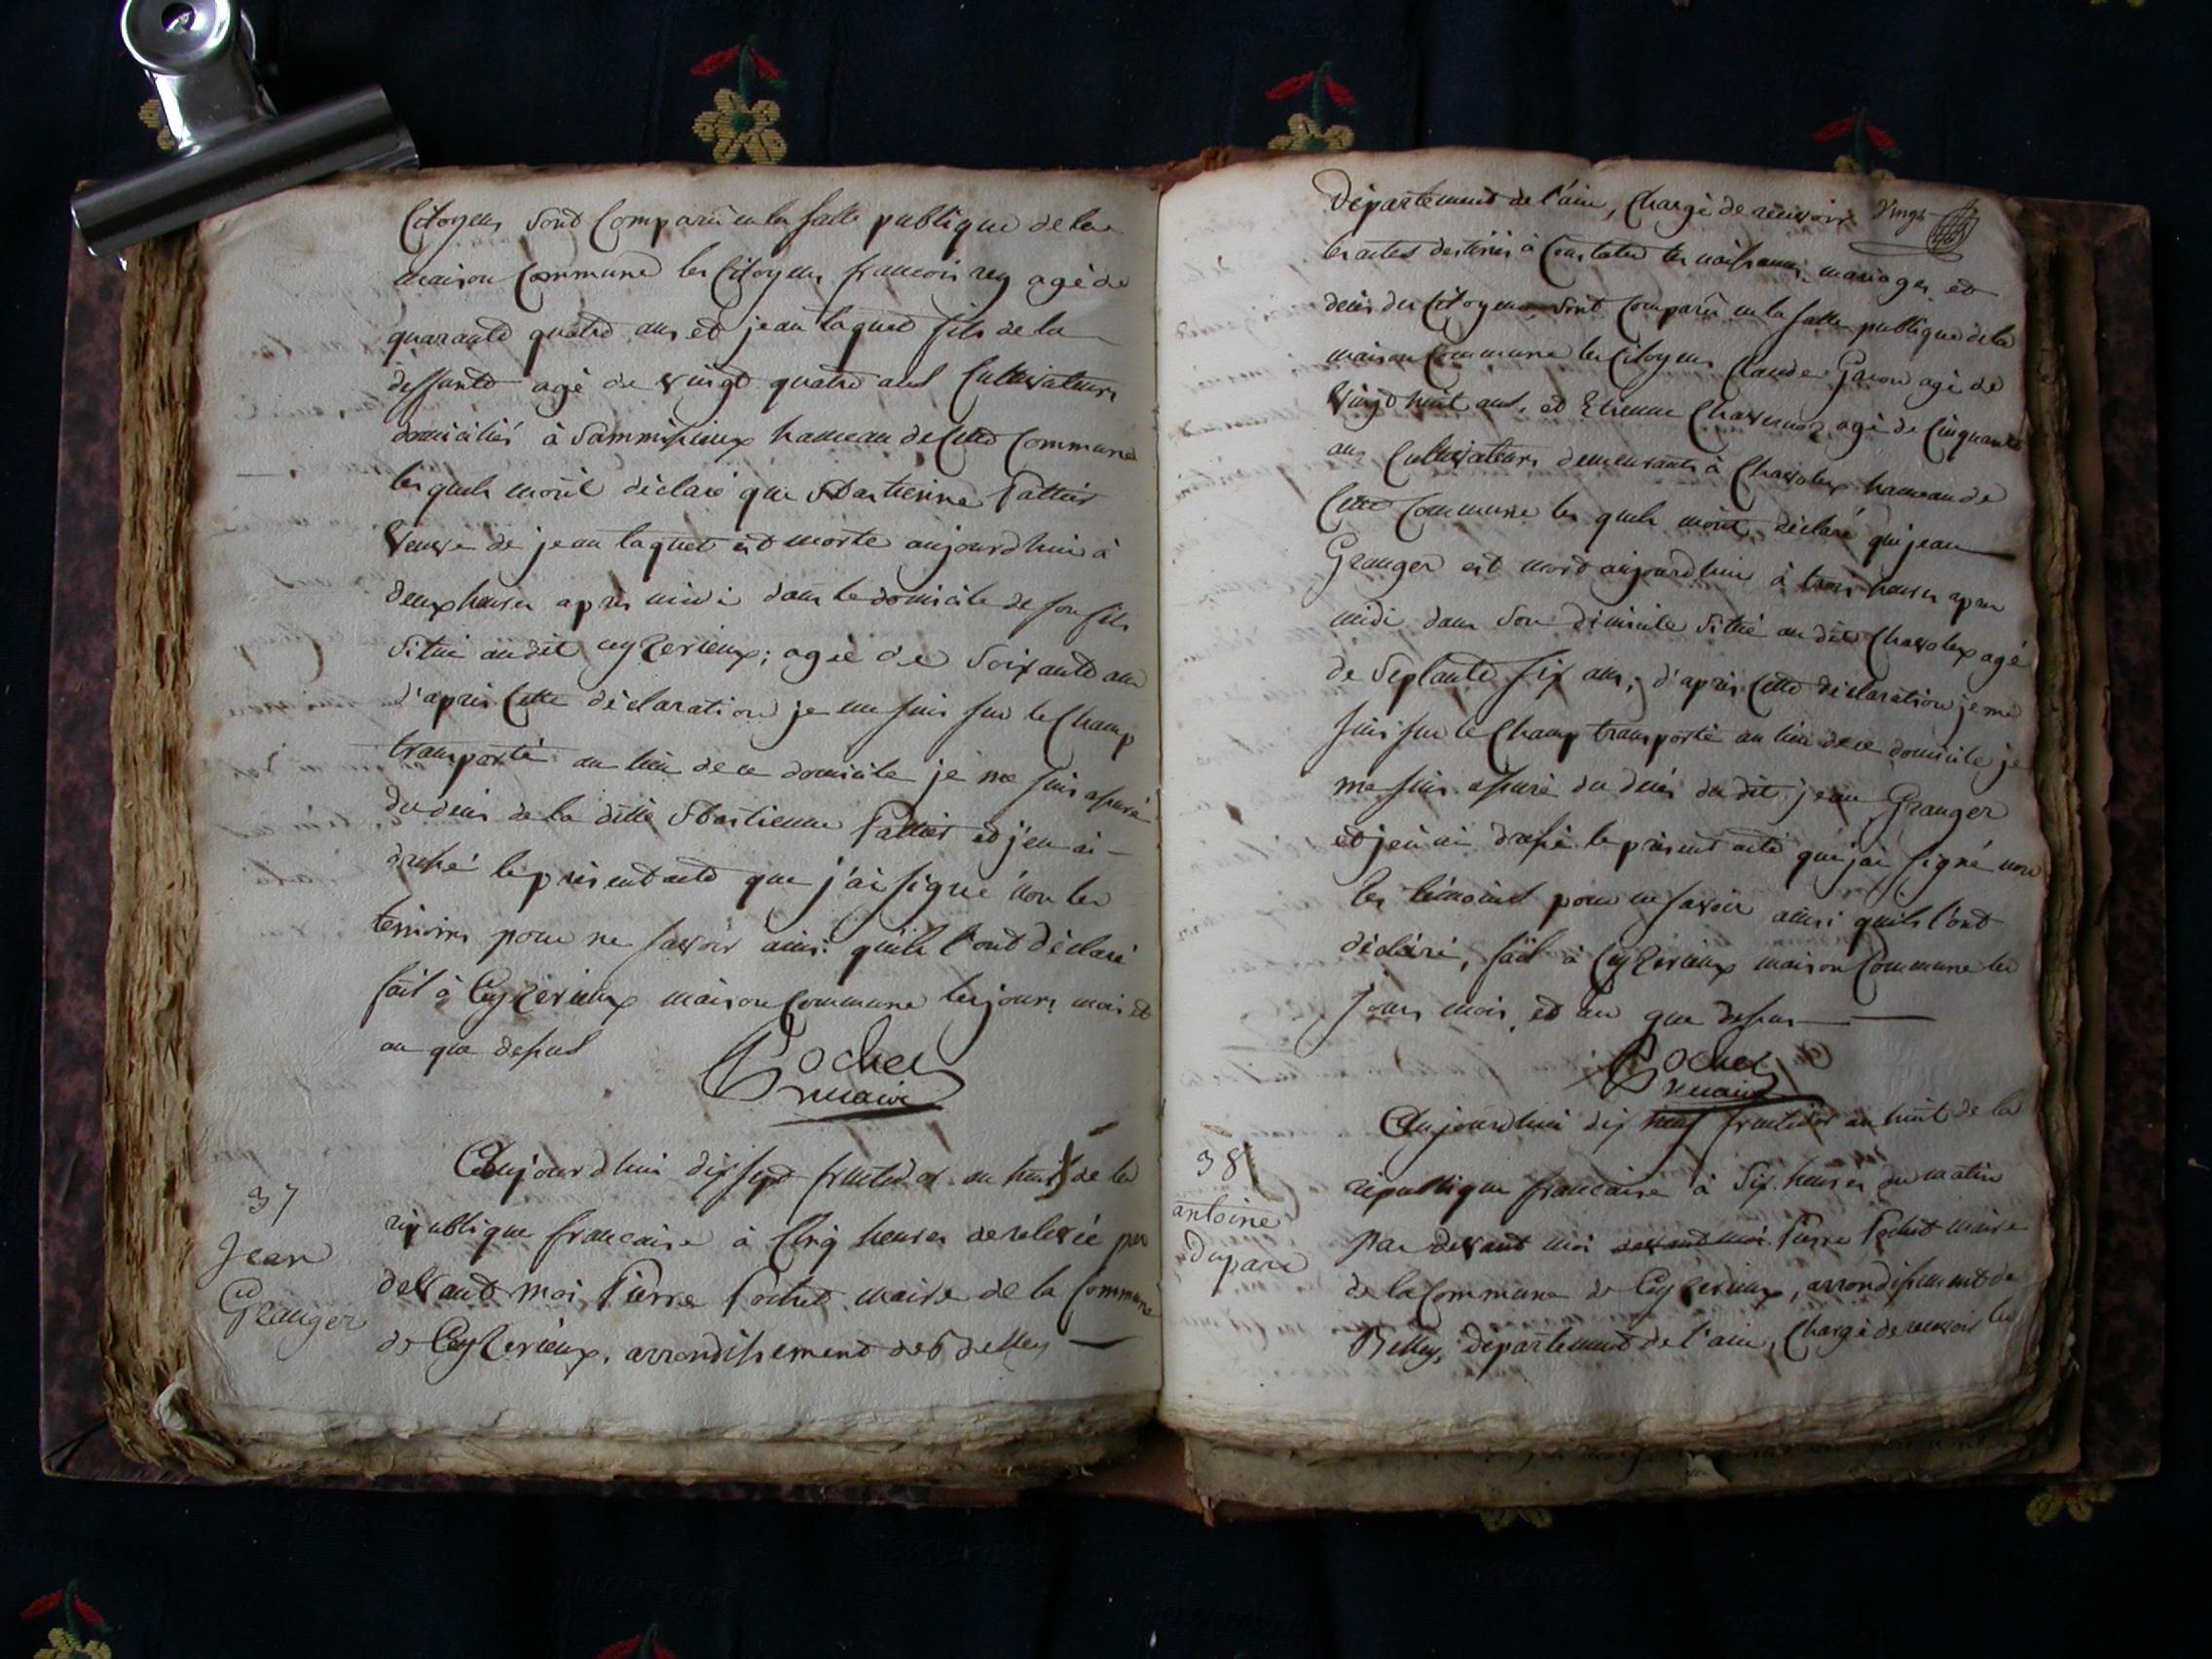 Citoyens sont Comparû en la salle publique de la
maison Commune les Citoyens francois rey agé de
quarante quatre ans et jean taquet fils de la
deffunte agé de vingt quatre ans Cultivateurs
domiciliés à hameau de Cette Commune
les quels m'ont déclaré que Sbastienne Pattier
Veuve de jean taquet est morte aujourdhui à
deux heures apres midi dans le domicile de son fils
situé au dit ceyzerieux; agée de Soixante ans
d'après Cette déclaration je me suis sur le Champ
transporté au lieu de ce domicile je me suis assuré
du décés de la ditte Sbastienne Pattier et j'en ai
dressé le présent acte que j'ai signé non les
témoins pour ne savoir ainsi qu'ils l'ont déclaré
fait à Ceyzerieux maison Commune les jours mois et
an que dessus
Pochet
maire
37
Jean
Granger
Aujourdhui dix sept fructidor an huit de la
république francaise à Cinq heures de relevée par
devant moi Pierre Pochet maire de la Commune
de Ceyzerieux, arrondissement de Belley
vingt
Département de l'ain, Chargé de recevoir
les actes destinés à Constater les naissances, mariages et
décés des Citoyens sont Comparû en la salle publique de la
maison Commune les Citoyens Claude agé de
Vingt huit ans, et Etienne agé de Cinquante
ans Cultivateurs demeurants à Chavolex hameau de
Cette Commune les quels m'ont déclaré que jean
Granger est mort aujourdhui à trois heures apres
midi dans son dimicile situé au dit Chavolex agé
de Septante six ans; d'après Cette déclaration je me
suis sur le Champ transporté au lieu de ce domicile je
me suis assuré du décés du dit jean Granger
et j'en ai dressé le présent acte que j'ai signé non
les témoins pour ne savoir ainsi qu'ils l'ont
déclaré, fait à Ceyzerieux maison Commune les
jours mois et an que dessus
Pochet
maire
38
antoine
Duparc
Aujourdhui dix neuf fructidor an huit de la
république francaise à Six heures du matin
Par devant moi devant moi Pierre Pochet maire
de la Commune de Ceyzerieux, arrondissement de
Belley, département de l'ain, Chargé de recevoir les